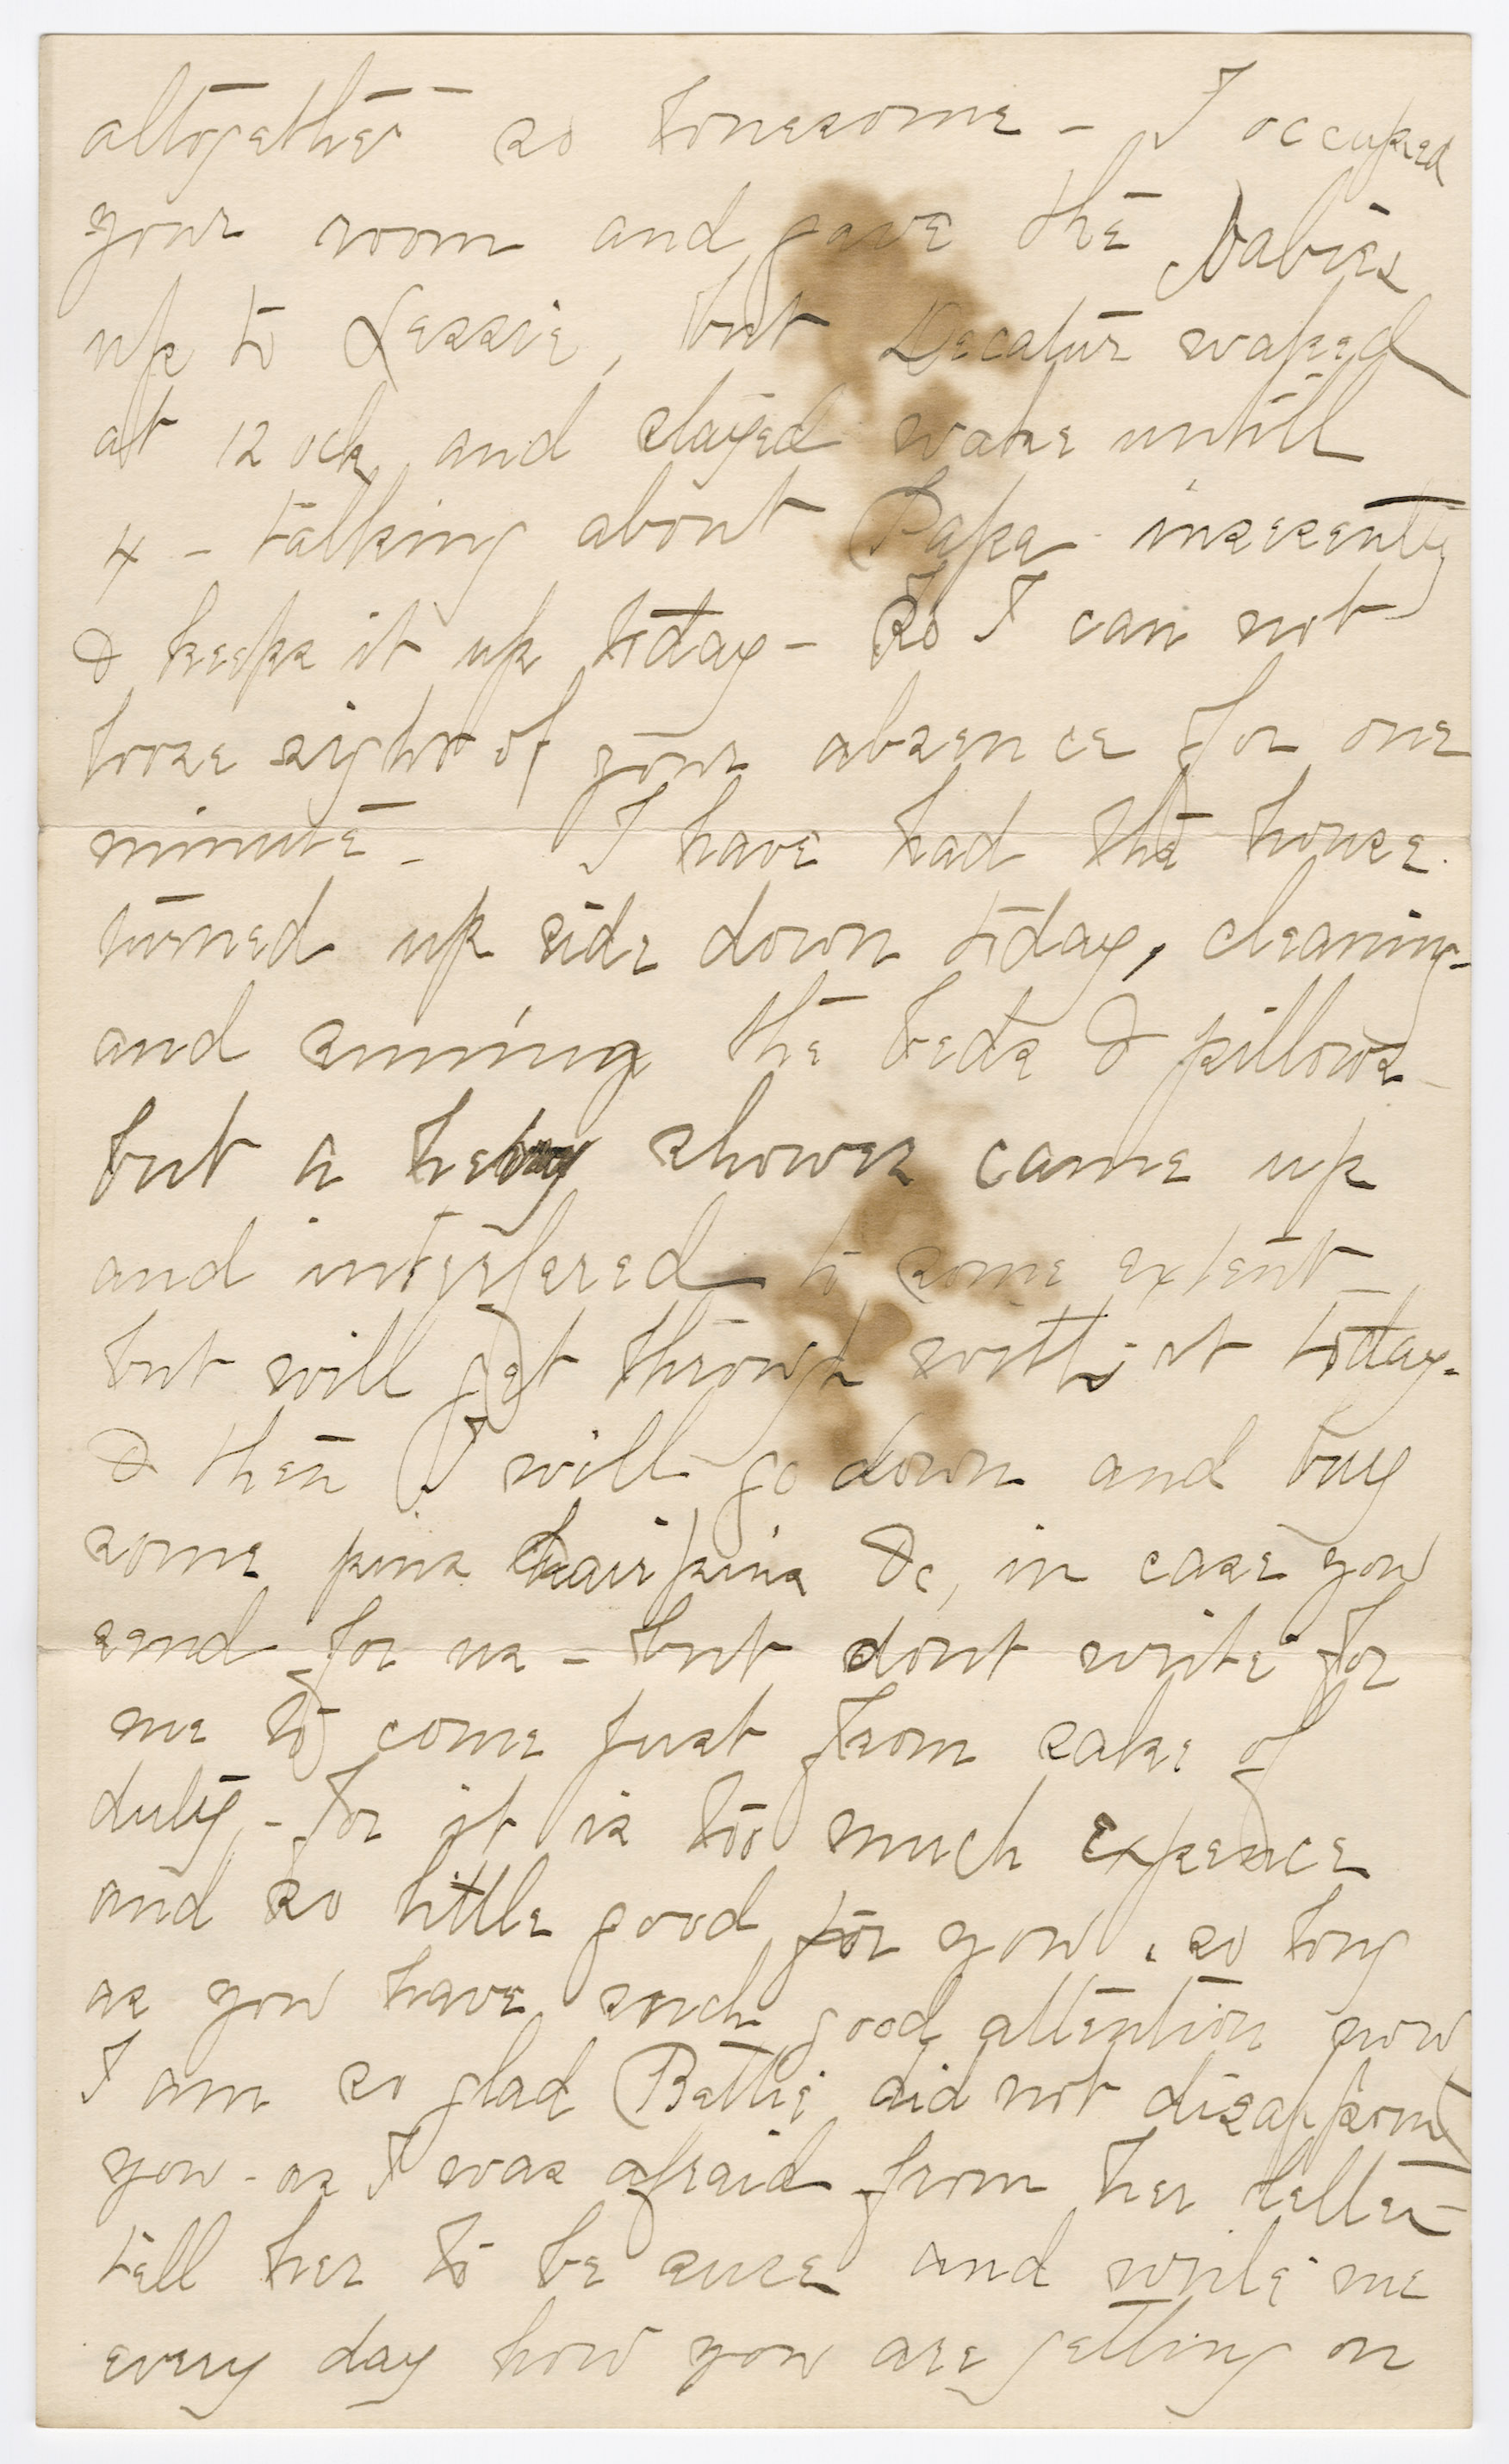 altogether so lonesome - I occupied
your room and gave the babies
up to Lessie, but Decatur waked
at 12 ock and stayed wake untill
4 - talking about Papa insesently
& keeps it up today - So I can not
loose sight of your absence for one
minute - I have had the house
turned up side down today, cleaning
and sunning the beds & pillows -
but a hevy shower came up
and interfered to some extent -
but will get through with it today -
& then I will go down and buy
some pins hairpins &c, in case you
send for us - but dont write for
me to come just from sake of
duty - for it is too much expence
and so little good for you, so long
as you have such good attention now
I am so glad Bettie did not disappoint
you - as I was afraid from her letter -
tell her to be sure and write me
every day how you are getting on